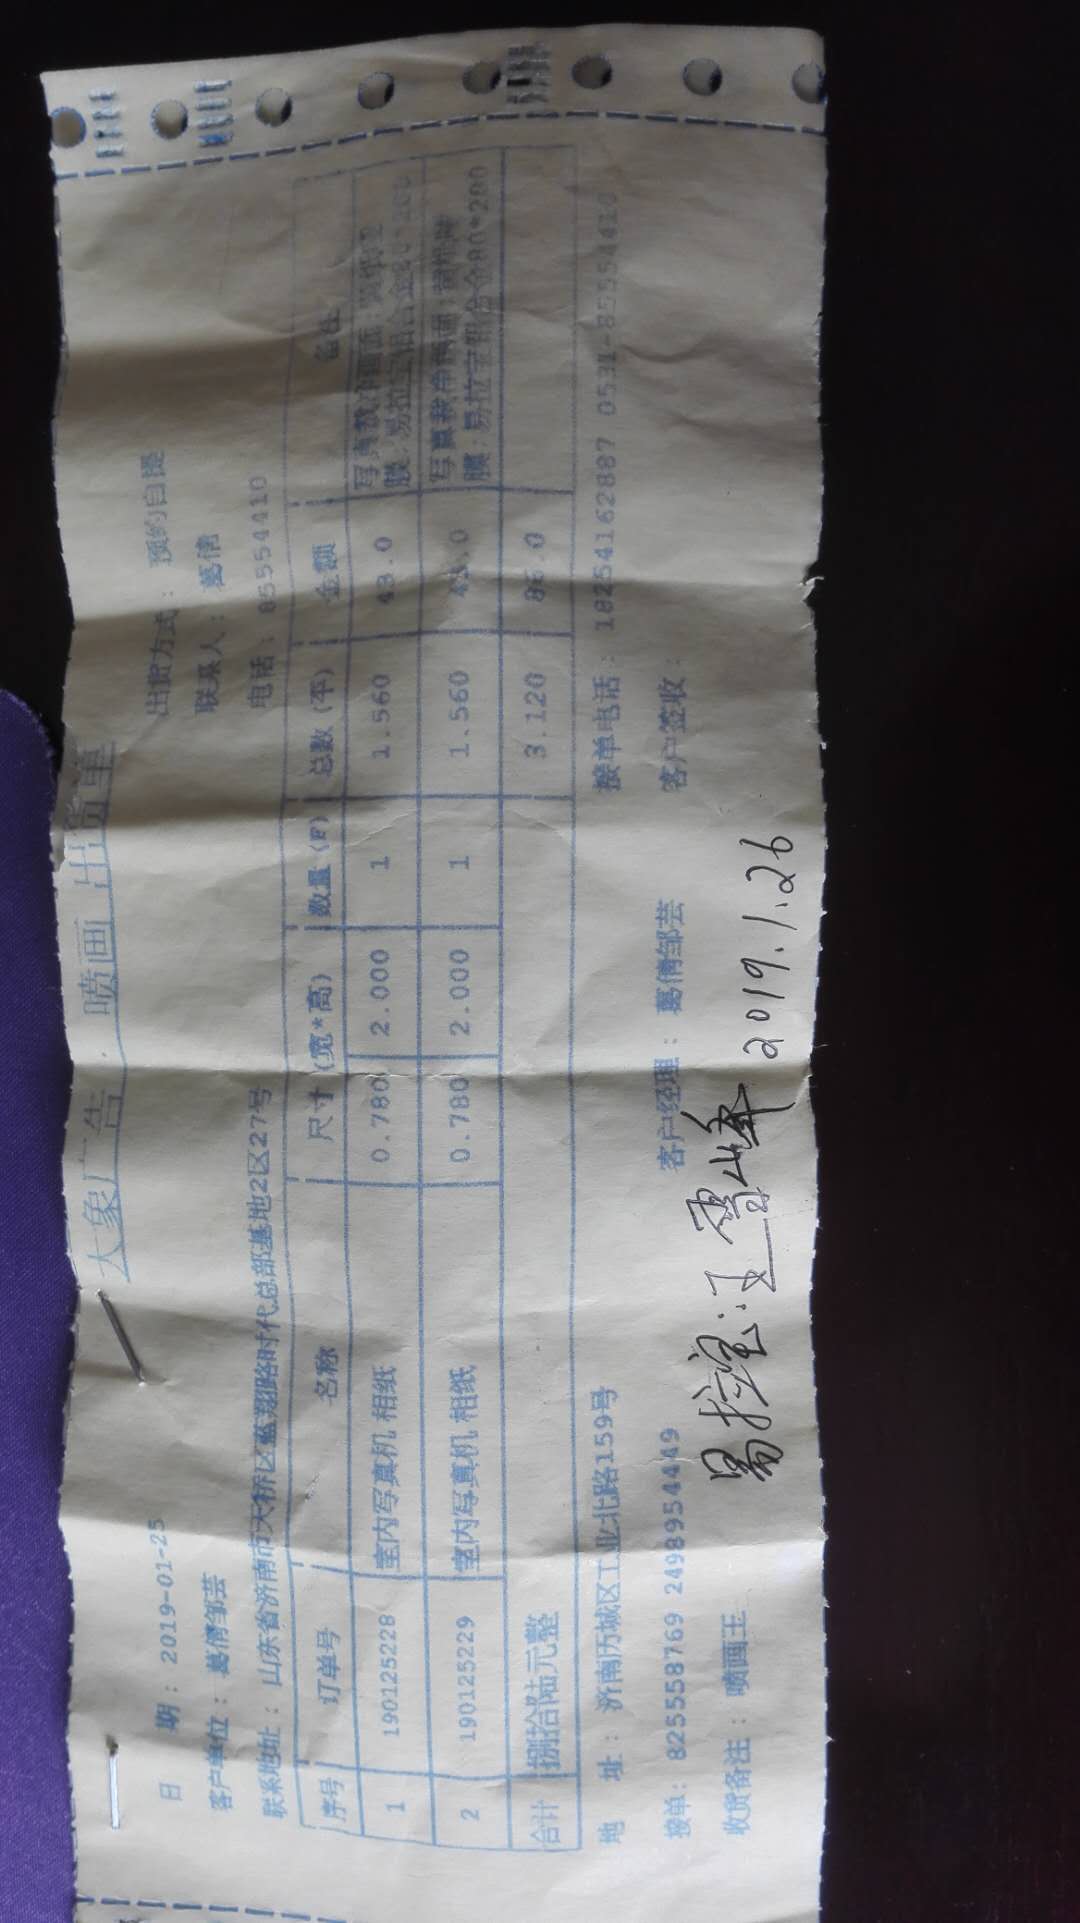 大象广告 喷画 出货单
日 期：2019-01-25 出货方式：预约自提
客户单位：葛倩邹芸 联系人：葛倩
联系地址：山东省济南市天桥区蓝翔路时代总部基地2区27号 电话：85554410
序号 订单号 名称 尺寸(宽*高) 数量(P) 总数(平) 金额 备注
1 190125228 室内写真机 相纸 0.780 2.000 1 1.560 43.0 写真裁净画面
膜;易拉宝铝合金80*200
2 190125229 室内写真机 相纸 0.780 2.000 1 1.560 43.0 写真裁净画面
膜;易拉宝铝合金80*200
合计 捌拾陆元整 3.120 86.0
地 址：济南历城区工业北路159号 接单电话：18254162887 0531-85554410
接单：825558769 2498954449 客户经理：葛倩邹芸 客户签收：
收货备注：喷画王
易拉宝：王雪峰 2019.1.26